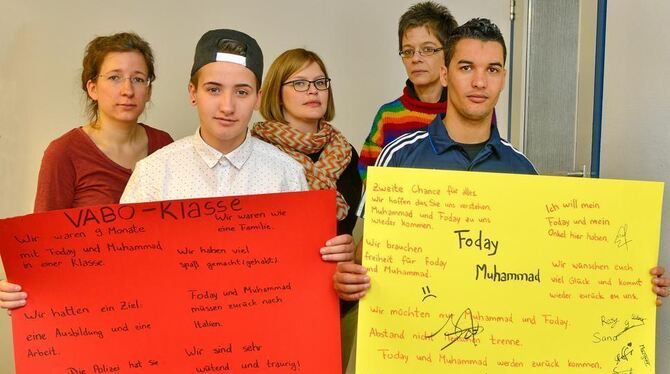 VABO-Klasse
Wir waren 9 Monate
mit Foday und Muhammad
in einer Klasse.
Wir hatten ein Ziel:
eine Ausbildung und eine
Arbeit.
Die Polizei hat sie
Wir waren wie
eine Familie.
Wir haben viel
spaß gemacht (gehabt).
Foday und Muhammad
müssen zurück nach
Italien.
Wir sind sehr
wütend und traurig!
Zweite Chance für alles
Wir hoffen das Sie uns verstehen.
Muhammad und Foday zu uns
wieder kommen.
Wir brauchen
freiheit für Foday
und Muhammad.
Foday
Muhammad
Ich will mein
Foday und mein
Onkel hier haben.
Wir wünschen euch
viel Glück und kommt
wieder zurück zu uns.
Wir möchten mit Muhammad und Foday.
Abstand nicht Menschen trenne.
Foday und Muhammad werden zurück kommen.